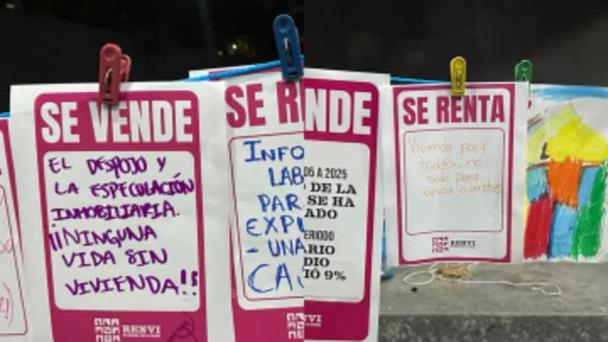 SE VENDE
EL DESPOJO Y
LA ESPECULACIÓN
INMOBILIARIA.
¡¡NINGUNA
VIDA SIN
VIVIENDA!!
RENVI
SE R
INFO
LAB
PAR
EXP
- UNA
CA
REN
NDE
05 A 2025
DE LA
SE HA
ADO
PERIODO
ARIO
DIO
IÓ 9%
SE RENTA
Vivienda para
tod@s, no
solo para
unos cuantos
RENVI